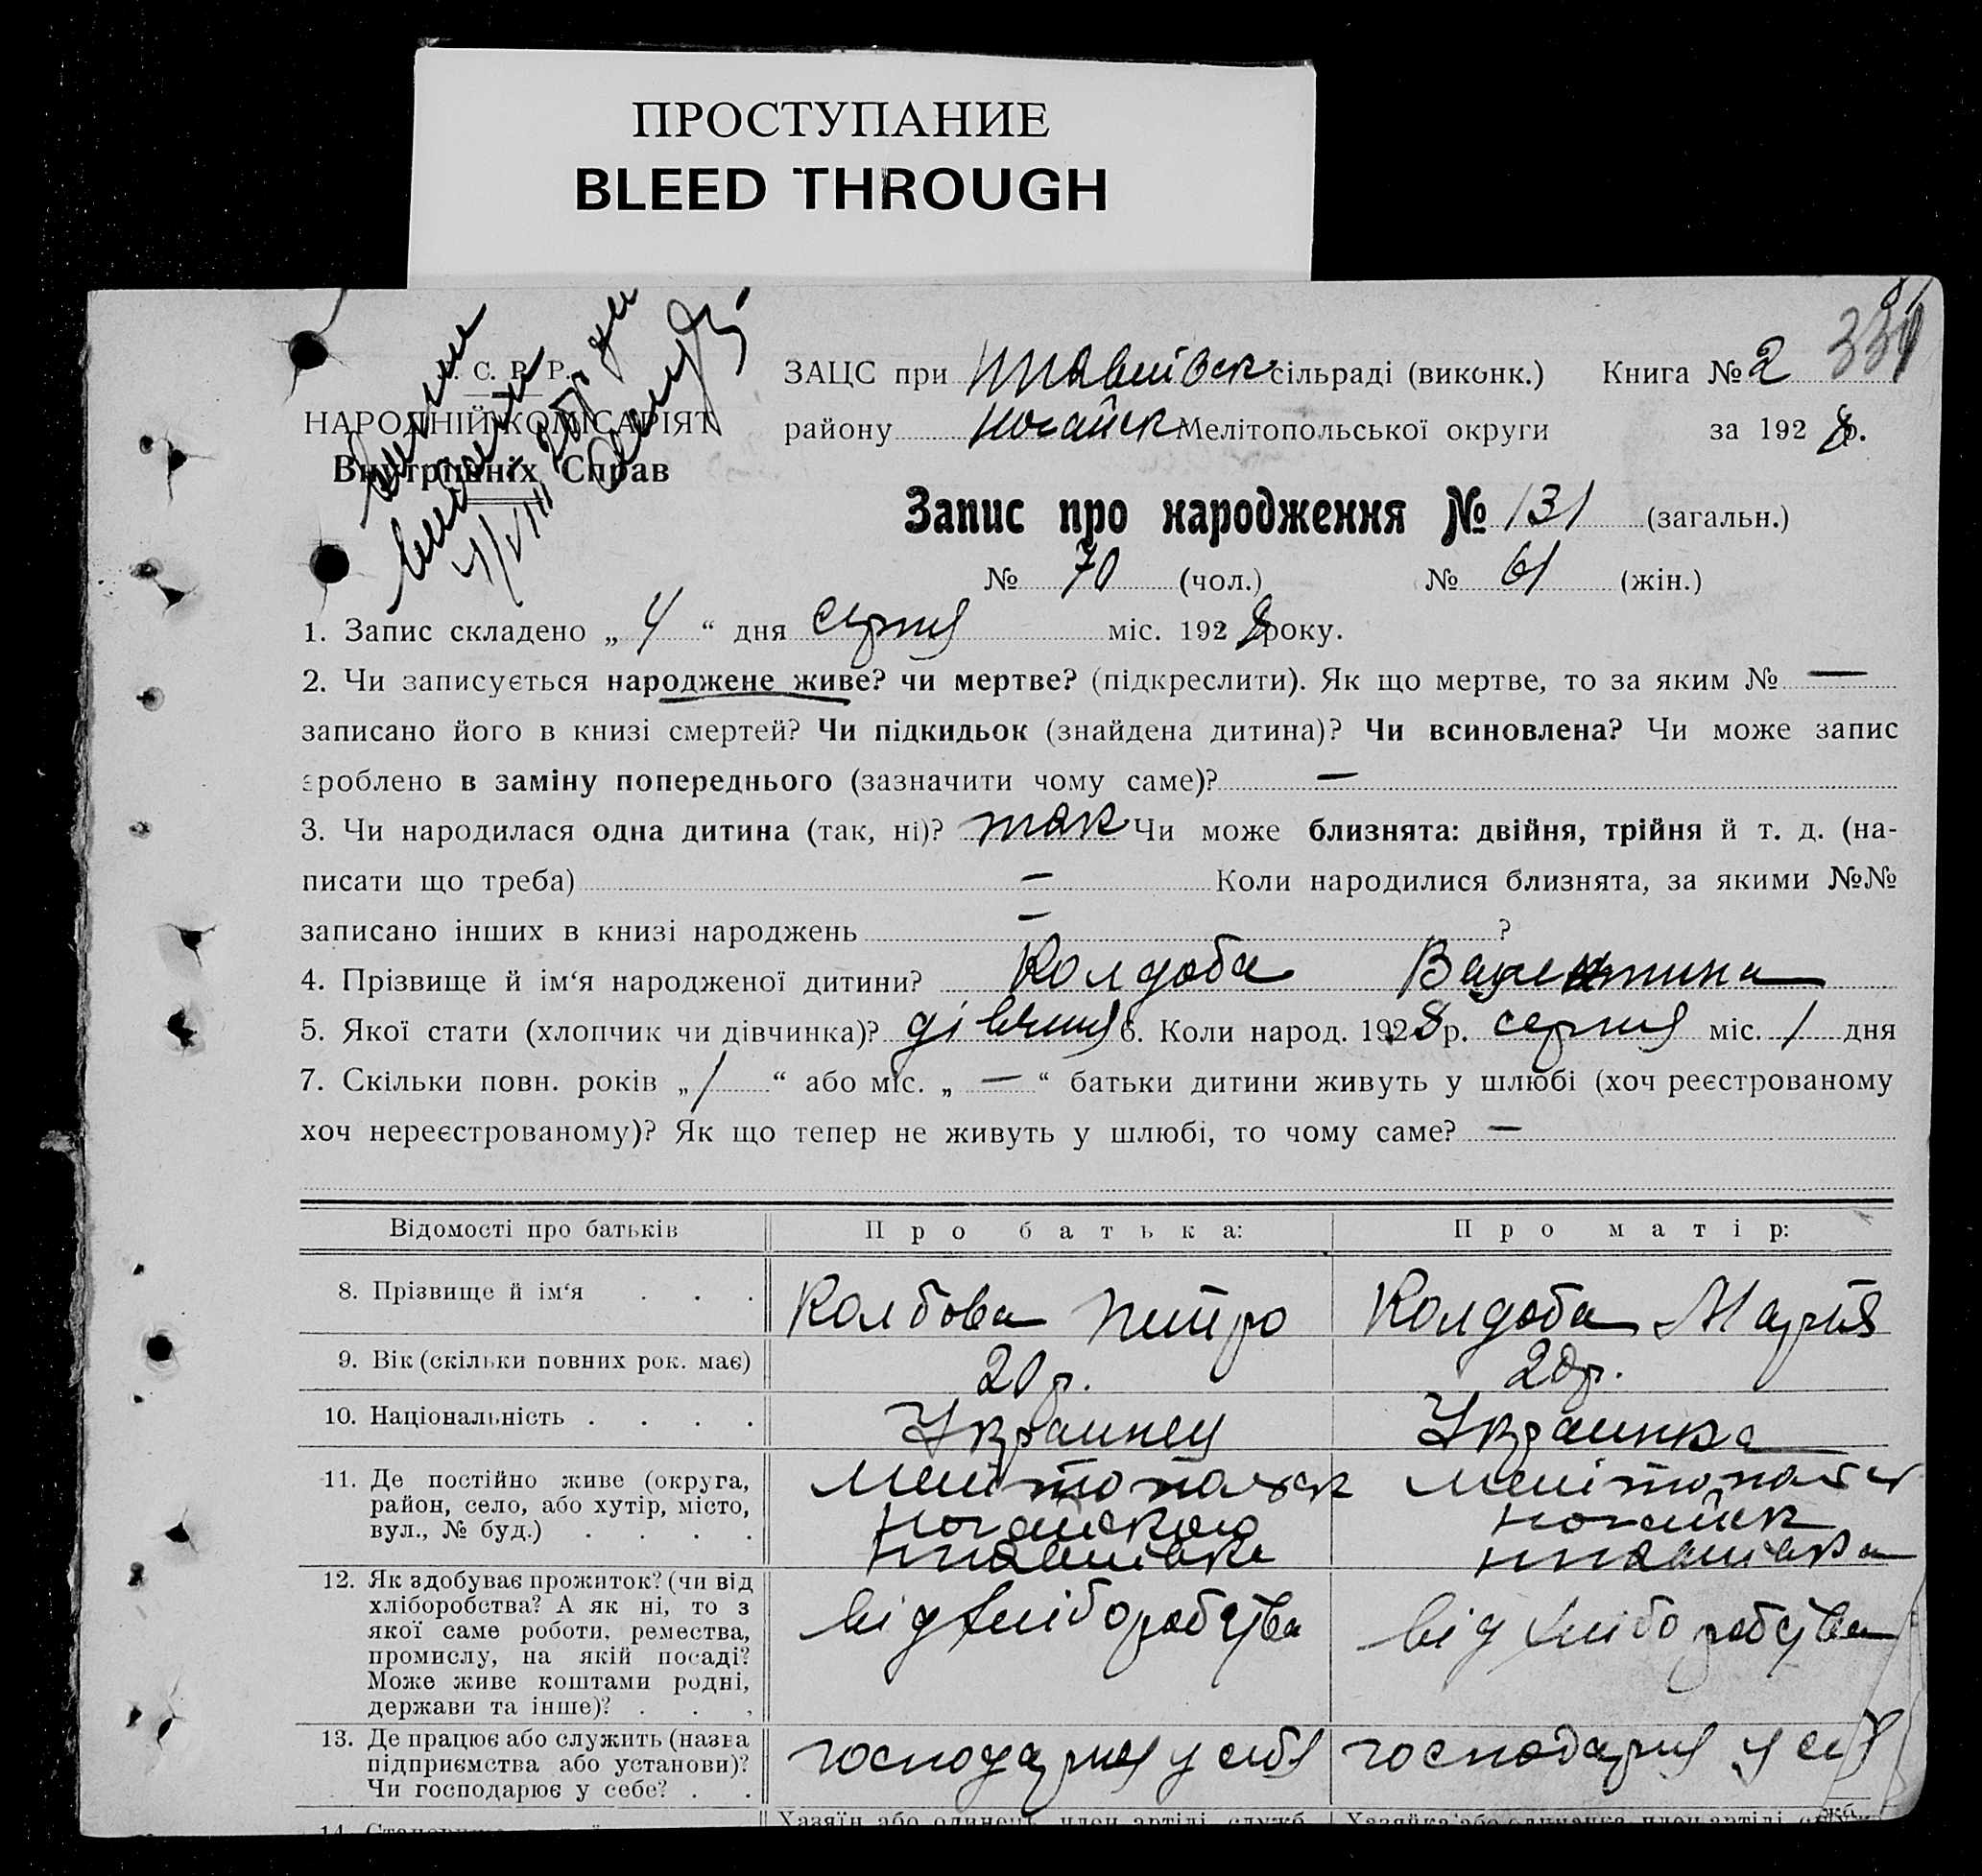 ПРОСТУПАНИЕ
BLEED THROUGH
334
С. Р. Р.
НАРОДНІЙ КОМІСАРІЯТ
Внутрішніх Справ
ЗАЦС при сільраді (виконк.) Книга № 2
району Ногайск Мелітопольської округи за 1928 р.
Запис про народження № 131 (загальн.)
№ 70 (чол.) № 61 (жін.)
1. Запис складено „ 4 “ дня серпня міс. 1928 року.
2. Чи записується народжене живе? чи мертве? (підкреслити). Як що мертве, то за яким № —
записано його в книзі смертей? Чи підкидьок (знайдена дитина)? Чи всиновлена? Чи може запис
зроблено в заміну попереднього (зазначити чому саме)? —
3. Чи народилася одна дитина (так, ні)? так Чи може близнята: двійня, трійня й т. д. (на-
писати що треба) — Коли народилися близнята, за якими №№
записано інших в книзі народжень — ?
4. Прізвище й ім‘я народженої дитини? Колдоба Валентина
5. Якої стати (хлопчик чи дівчинка)? дівчина 6. Коли народ. 1928 р. серпня міс. 1 дня
7. Скільки повн. років „ 1 “ або міс. „ — “ батьки дитини живуть у шлюбі (хоч реєстрованому
хоч нереєстрованому)? Як що тепер не живуть у шлюбі, то чому саме? —
Відомості про батьків Про батька: Про матір:
8. Прізвище й ім‘я . . . Колбова Питро Колдоба Мария
9. Вік (скільки повних рок. має) 20 р. 20 р.
10. Національність . . . . Украинец Украинка
11. Де постійно живе (округа, Мелітопольск Мелітопольск
район, село, або хутір, місто, Ногайского Ногайск
вул., № буд.) . . . .
12. Як здобуває прожиток? (чи від
хліборобства? А як ні, то з від хліборобства від хліборобства
якої саме роботи, ремества,
промислу, на якій посаді?
Може живе коштами родні,
держави та інше)? . . .
13. Де працює або служить (назва господарює у себя господарює у себя
підприємства або установи)?
Чи господарює у себе? . .
14. Хазяїн або одинець, член артілі, служб. Хазяйка або одиначка, член артілі